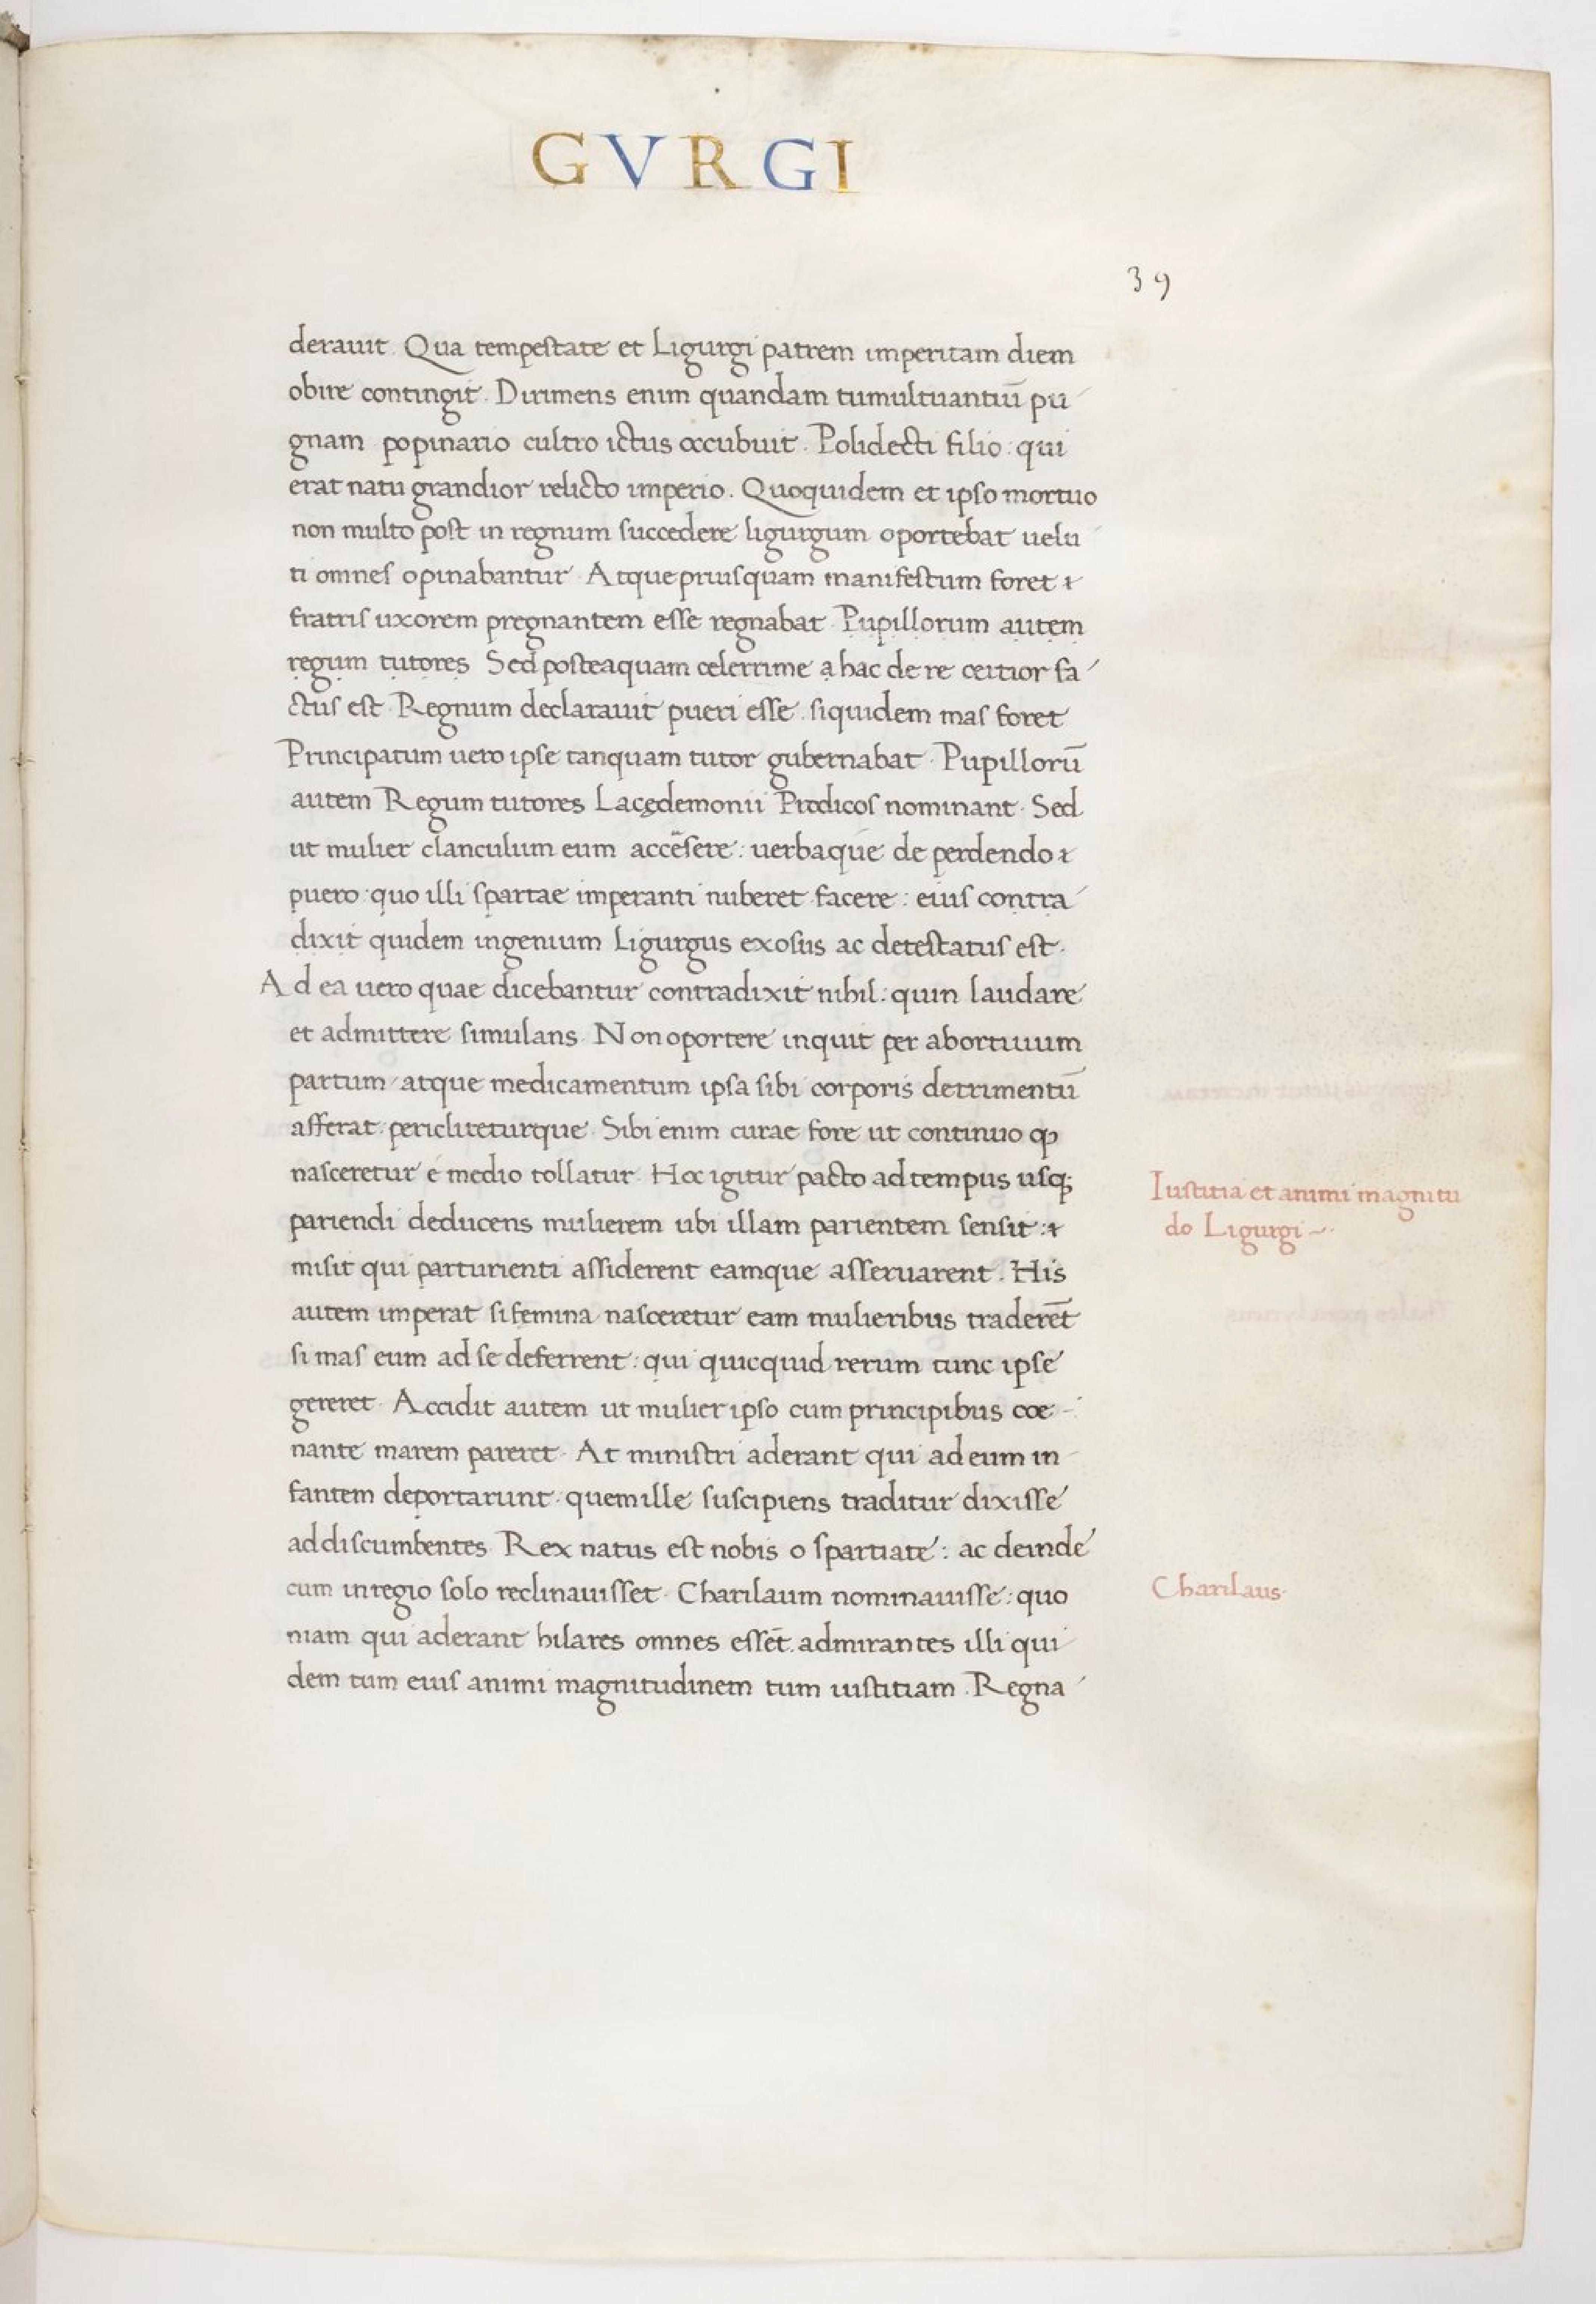 GVRGI
39
derauit. Qua tempestate et Ligurgi patrem imperitam diem
obire contingit. Dirimens enim quandam tumultuantiū pu
gnam popinario cultro ictus occubuit. Polidecti filio: qui
erat natu grandior relicto imperio. Quoquidem et ipso mortuo
non multo post in regnum succedere ligurgum oportebat uelu
ti omnes opinabantur. Atque priusquam manifestum foret
fratris uxorem pregnantem esse regnabat. Pupillorum autem
regum tutores Sed posteaquam celerrime a hac de re certior fa
ctus est. Regnum declarauit pueri esse. siquidem mas foret
Principatum uero ipse tanquam tutor gubernabat. Pupillorū
autem Regum tutores Lacędemonii Prodicos nominant. Sed
ut mulier clanculum eum accēsere: uerbaque de perdendo
puero: quo illi spartae imperanti nuberet facere: eius contra
dixit quidem ingenium Ligurgus exosus ac detestatus est.
Ad ea uero quae dicebantur contradixit nihil: quin laudare
et admittere simulans. Non oportere inquit per abortiuum
partum atque medicamentum ipsa sibi corporis detrimentū
afferat: periclireturque. Sibi enim curae fore ut continuo ꝙ
nasceretur e medio tollatur. Hoc igitur pacto ad tempus usq;
pariendi deducens mulierem ubi illam parientem sensit:
misit qui parturienti assiderent eamque asseruarent. His
autem imperat si femina nasceretur eam mulieribus traderēt
si mas eum ad se deferrent: qui quicquid rerum tunc ipse
gereret. Accidit autem ut mulier ipso cum principibus coe-
nante marem pareret. At ministri aderant qui ad eum in
fantem deportarunt. quem ille suscipiens traditur dixisse
ad discumbentes. Rex natus est nobis o spartiate: ac deinde
cum in regio solo reclinauisset. Charilaum nominauisse: quo
niam qui aderant hilares omnes essēt. admirantes illi qui
dem tum eius animi magnitudinem tum iustitiam. Regna
Iustitia et animi magnitu
do Ligurgi
Charilaus.